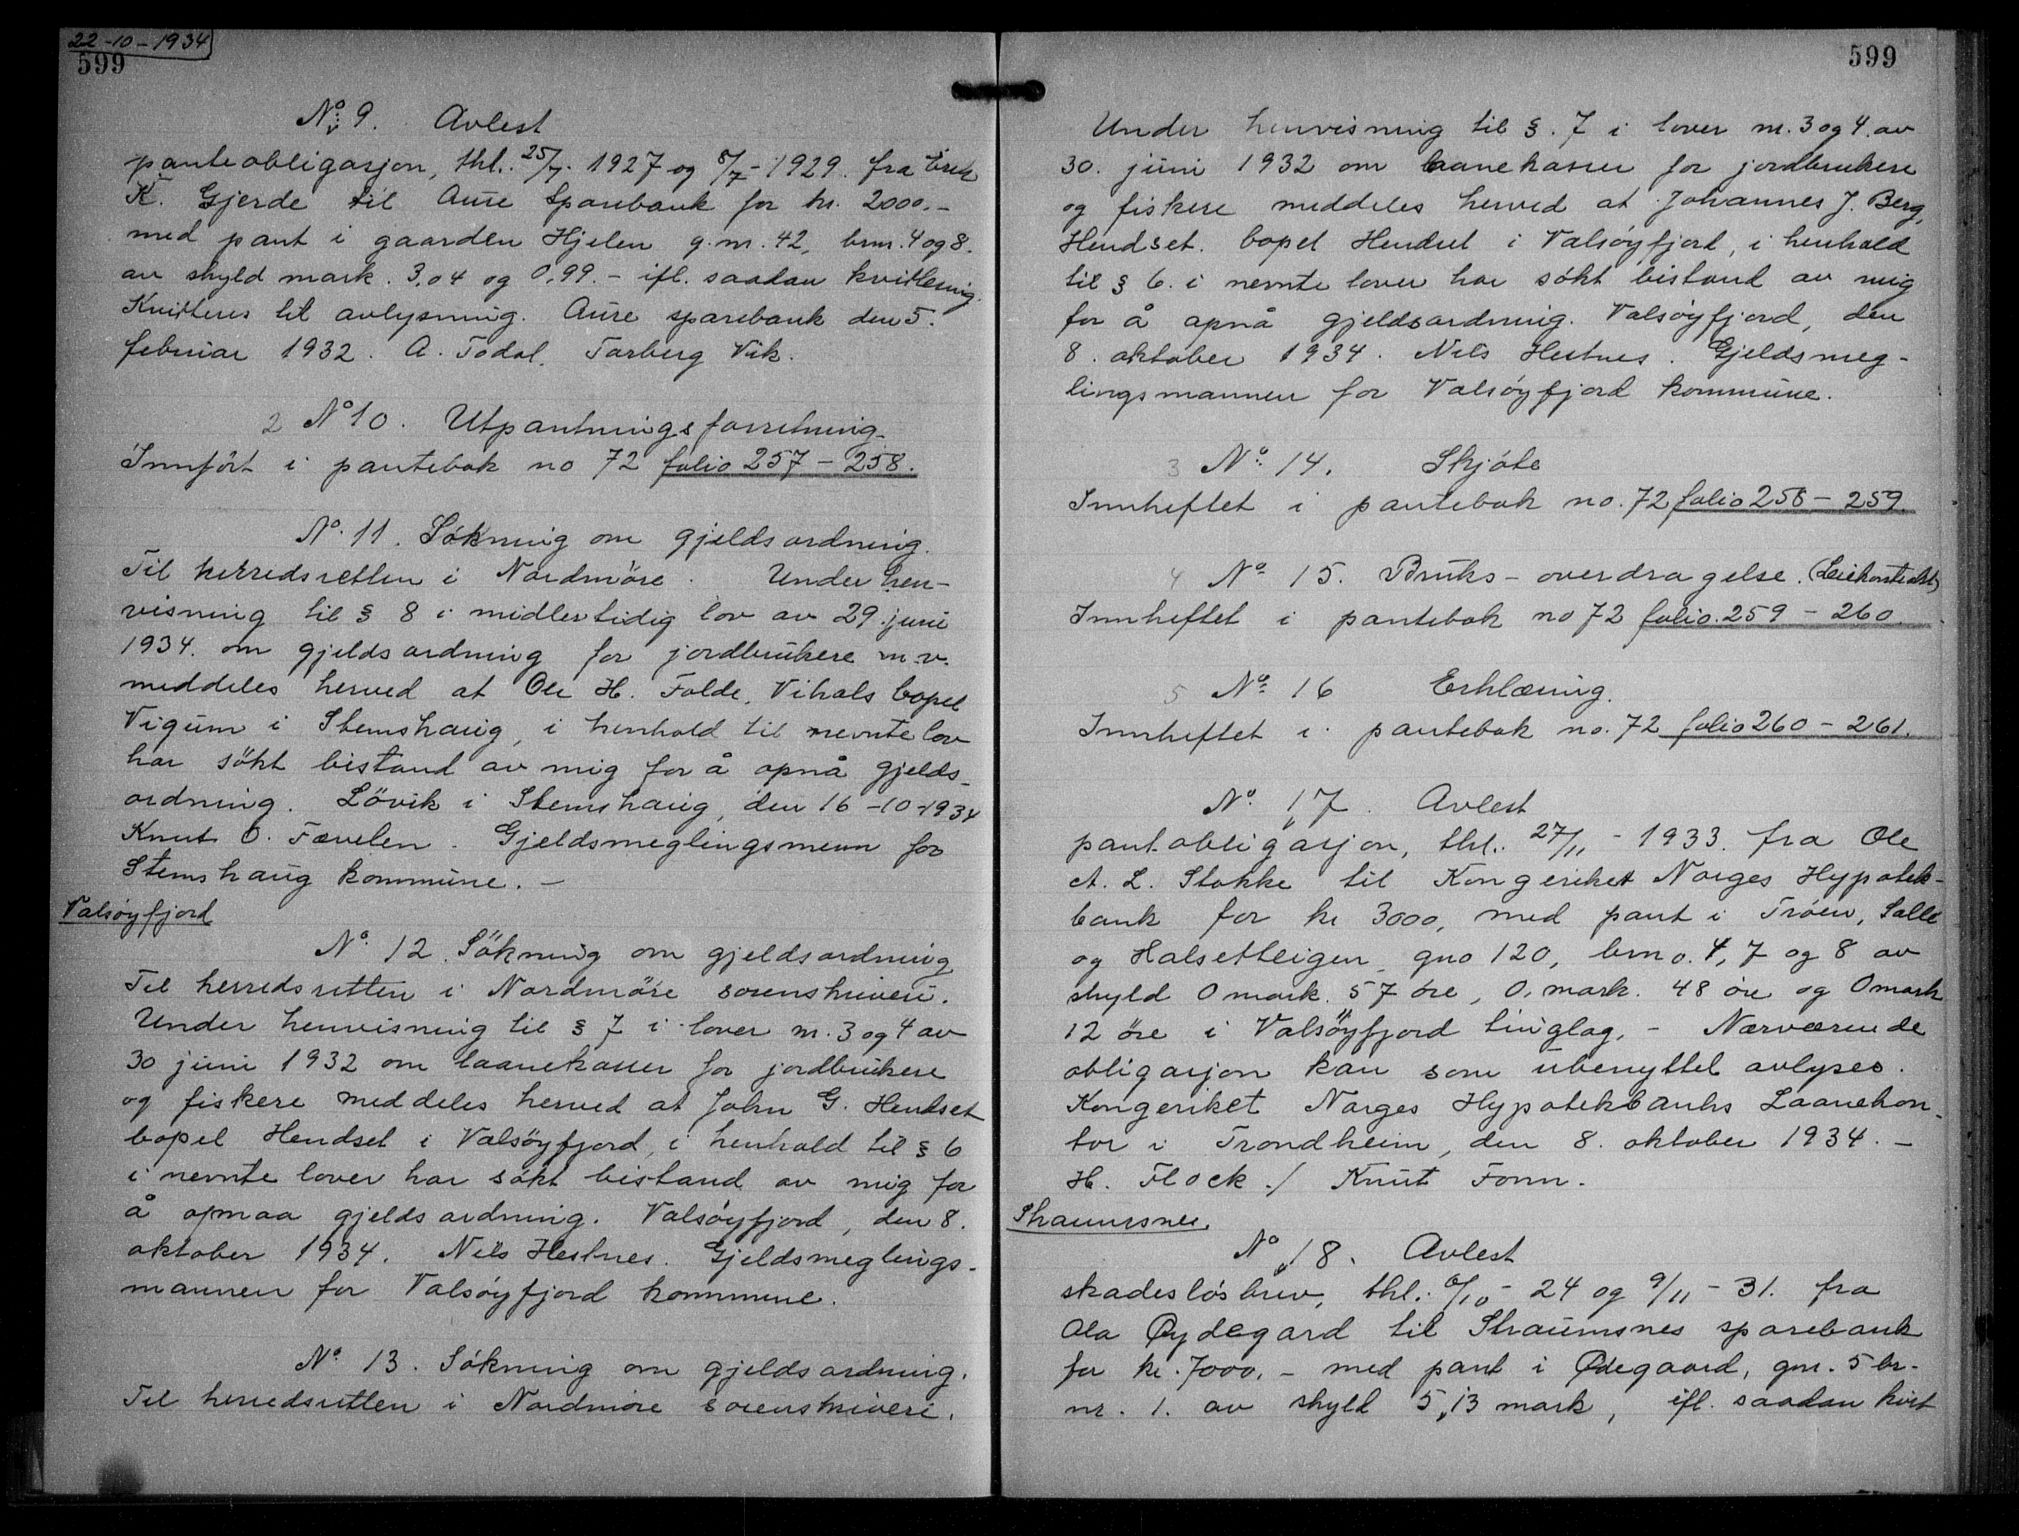 22-10-1934
599
No 9. Avlest
panteobligasjon, thl. 25/7. 1927 og 8/7-1929. fra Erik
K. Gjerde til Aure Sparebank for kr. 2000.-
med pant i gaarden Hjelen g.nr. 42, brnr. 4 og 8.
av skyld mark. 3,04 og 0,99.- ifl. saadan kvittering.
Kvitteres til avlysning. Aure sparebank den 5.
februar 1932. A. Todal. Torberg Vik.
2 No 10. Utpantningsforretning.
Innført i pantebok no 72 folio 257 - 258.
No. 11. Søkning om gjeldsordning.
Til herredsretten i Nordmøre. Under hen-
visning til § 8 i midlertidig lov av 29. juni
1934. om gjeldsordning for jordbrukere m.v.
meddeles herved at Ole H. Folde, Vihals bopel
Vigum i Stemshaug, i henhold til nevnte lov
har søkt bistand av mig for å opnå gjelds-
ordning. Løvik i Stemshaug, den 16-10-1934
Knut O. Fævelen. Gjeldsmeglingsmenn for
Stemshaug kommune. -
Valsøyfjord
No. 12. Søkning om gjeldsordning
Til herredsretten i Nordmøre sorenskriveri.
Under henvisning til § 7 i lover nr. 3 og 4 av
30 juni 1932 om laanekasser for jordbrukere
og fiskere meddeles herved at John G. Hendset
bopel Hendset i Valsøyfjord, i henhold til § 6
i nevnte lover har søkt bistand av mig for
å opnaa gjeldsordning. Valsøyfjord, den 8.
oktober 1934. Nils Hestnes. Gjeldsmeglings-
mannen for Valsøyfjord kommune.
No. 13. Søkning om gjeldsordning.
Til herredsretten i Nordmøre sorenskriveri.
599
Under henvisning til §. 7 i lover nr. 3 og 4. av
30. juni 1932 om laanekasser for jordbrukere
og fiskere meddeles herved at Johannes J. Berg,
Hendset. bopel Hendset i Valsøyfjord, i henhold
til § 6. i nevnte lover har søkt bistand av mig
for å opnå gjeldsordning. Valsøyfjord, den
8. oktober 1934. Nils Hestnes. Gjeldsmeg-
lingsmannen for Valsøyfjord kommune.
3 No. 14. Skjøte
Innheftet i pantebok no. 72 folio 258 - 259.
4 No. 15. Bruks-overdragelse. (Leiekontrakt)
Innheftet i pantebok no 72 folio. 259 - 260.
5 No. 16 Erklæring.
Innheftet i pantebok no. 72 folio 260 - 261.
No. 17. Avlest
pantobligasjon, thl. 27/11 - 1933. fra Ole
A. L. Stokke til Kongeriket Norges Hypotek-
bank for kr 3000, med pant i Trøen, Salle
og Halsetteigen gno 120, brno. 4, 7 og 8 av
skyld 0 mark. 57 øre, 0, mark. 48 øre og 0 mark
12 øre i Valsøyfjord tinglag, - Nærværende
obligasjon kan som ubenyttet avlyses.
Kongeriket Norges Hypotekbanks Laanekon-
tor i Trondheim, den 8. oktober 1934. -
H. Flock / Knut Fonn.
Straumsnes.
No 18. Avlest
skadesløsbrev, thl. 6/10 - 24 og 9/11 - 31. fra
Ola Øydegard til Straumsnes sparebank
for kr. 7000, - med pant i Ødegaard, gnr. 5 br-
nr. 1. av skyld 5,13 mark, ifl. saadan kvit